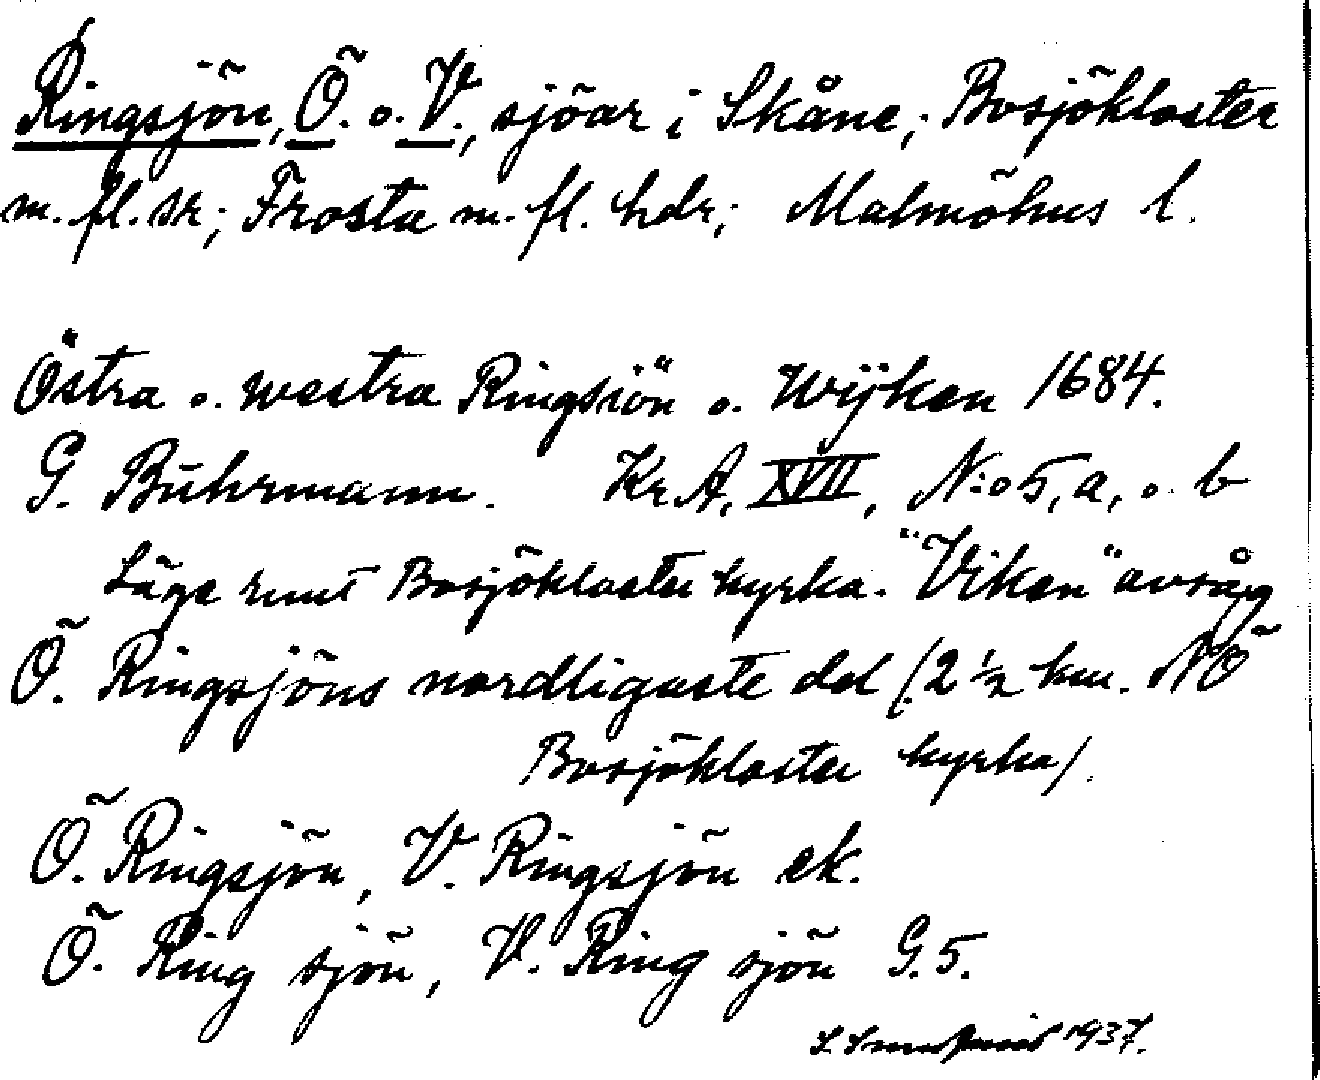 Ringsjön, Ö. o. V., sjöar i Skåne; Bosjökloster
m. fl. sr; Frosta m. fl. hdr; Malmöhus l.
Östra o. westra Ringsiön o. Wijken 1684.
G. Buhrmann. Kr.A. XVII, N:o 5, a, o. b
Läge runt Bosjökloster kyrka. "Viken" avsåg
Ö. Ringsjöns nordligaste del (2 ½ km. NÖ
Bosjökloster kyrka).
Ö. Ringsjön, V. Ringsjön ek.
Ö. Ring sjön, V. Ring sjön G. 5.
1937.